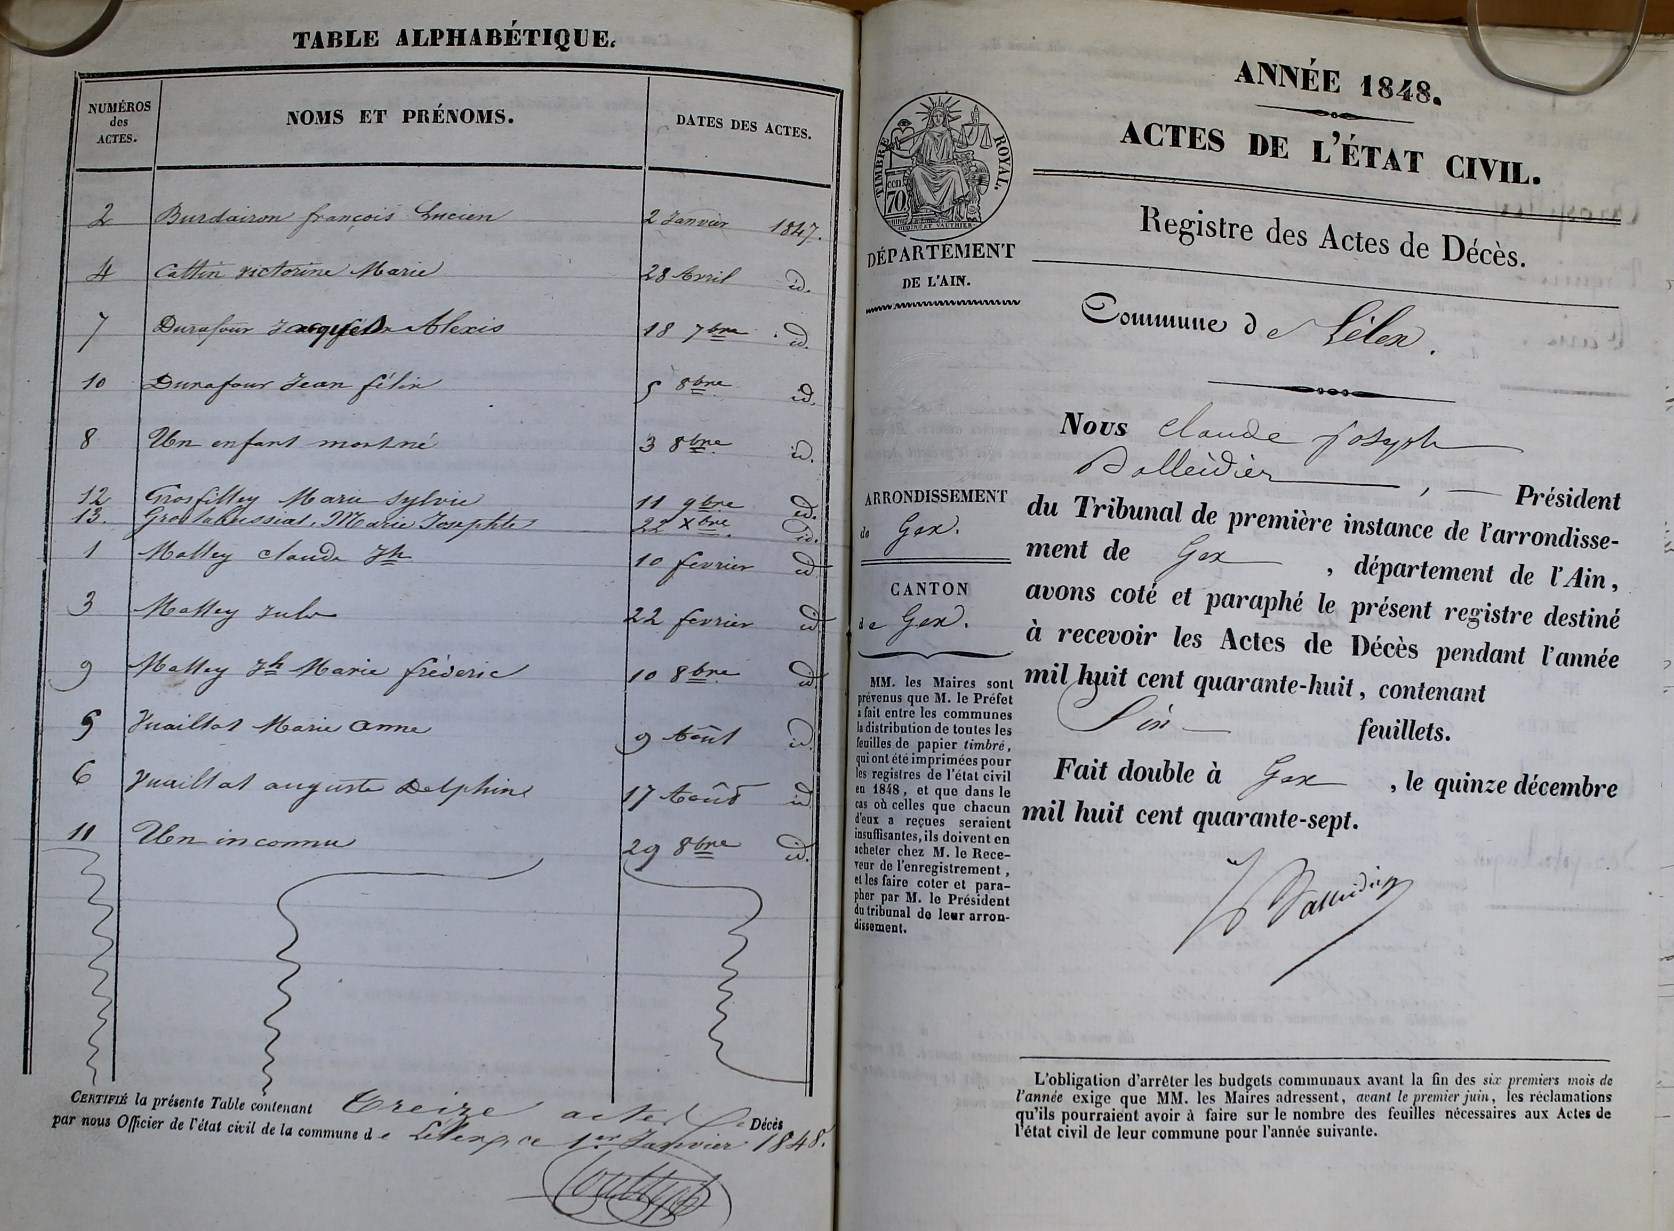 TABLE ALPHABÉTIQUE.
NUMÉROS
des
ACTES.
NOMS ET PRÉNOMS.
DATES DES ACTES.
2 Burdairon françois Lucien 2 Janvier 1847.
4 Cattin victorine Marie 28 Avril id.
7 Durafour Alexis 18 7bre id.
10 Durafour Jean félix 5 8bre id.
8 Un enfant mortné 3 8bre id.
12 Grosfilley Marie Sylvie 11 9bre id.
13. Marie Josephte 22 Xbre id.
1 Malley claude Jh 10 fevrier id
3 Malley Jules 22 fevrier id
9 Malley Jh Marie fréderic 10 8bre id
5 Vuaillat Marie Anne 9 Août id.
6 Vuaillat auguste Delphine 17 Août id
11 Un inconnu 29 8bre id.
CERTIFIÉ la présente Table contenant Treize actes de Décès
par nous Officier de l'état civil de la commune de Lelex, ce 1er Janvier 1848.
ANNÉE 1848.
ACTES DE L'ÉTAT CIVIL.
TIMBRE ROYAL.
cen
70
DÉPARTEMENT
DE L'AIN.
Registre des Actes de Décès.
Commune de Lélex.
Nous Claude Joseph
Balleidier, Président
du Tribunal de première instance de l'arrondisse-
ment de Gex, département de l'Ain,
avons coté et paraphé le présent registre destiné
à recevoir les Actes de Décès pendant l'année
mil huit cent quarante-huit, contenant
Six feuillets.
Fait double à Gex, le quinze décembre
mil huit cent quarante-sept.
ARRONDISSEMENT
de Gex.
CANTON
de Gex.
MM. les Maires sont
prévenus que M. le Préfet
a fait entre les communes
la distribution de toutes les
feuilles de papier timbré,
qui ont été imprimées pour
les registres de l'état civil
en 1848, et que dans le
cas où celles que chacun
d'eux a reçues seraient
insuffisantes, ils doivent en
acheter chez M. le Rece-
veur de l'enregistrement,
et les faire coter et para-
pher par M. le Président
du tribunal de leur arron-
dissement.
L'obligation d'arrêter les budgets communaux avant la fin des six premiers mois de
l'année exige que MM. les Maires adressent, avant le premier juin, les réclamations
qu'ils pourraient avoir à faire sur le nombre des feuilles nécessaires aux Actes de
l'état civil de leur commune pour l'année suivante.